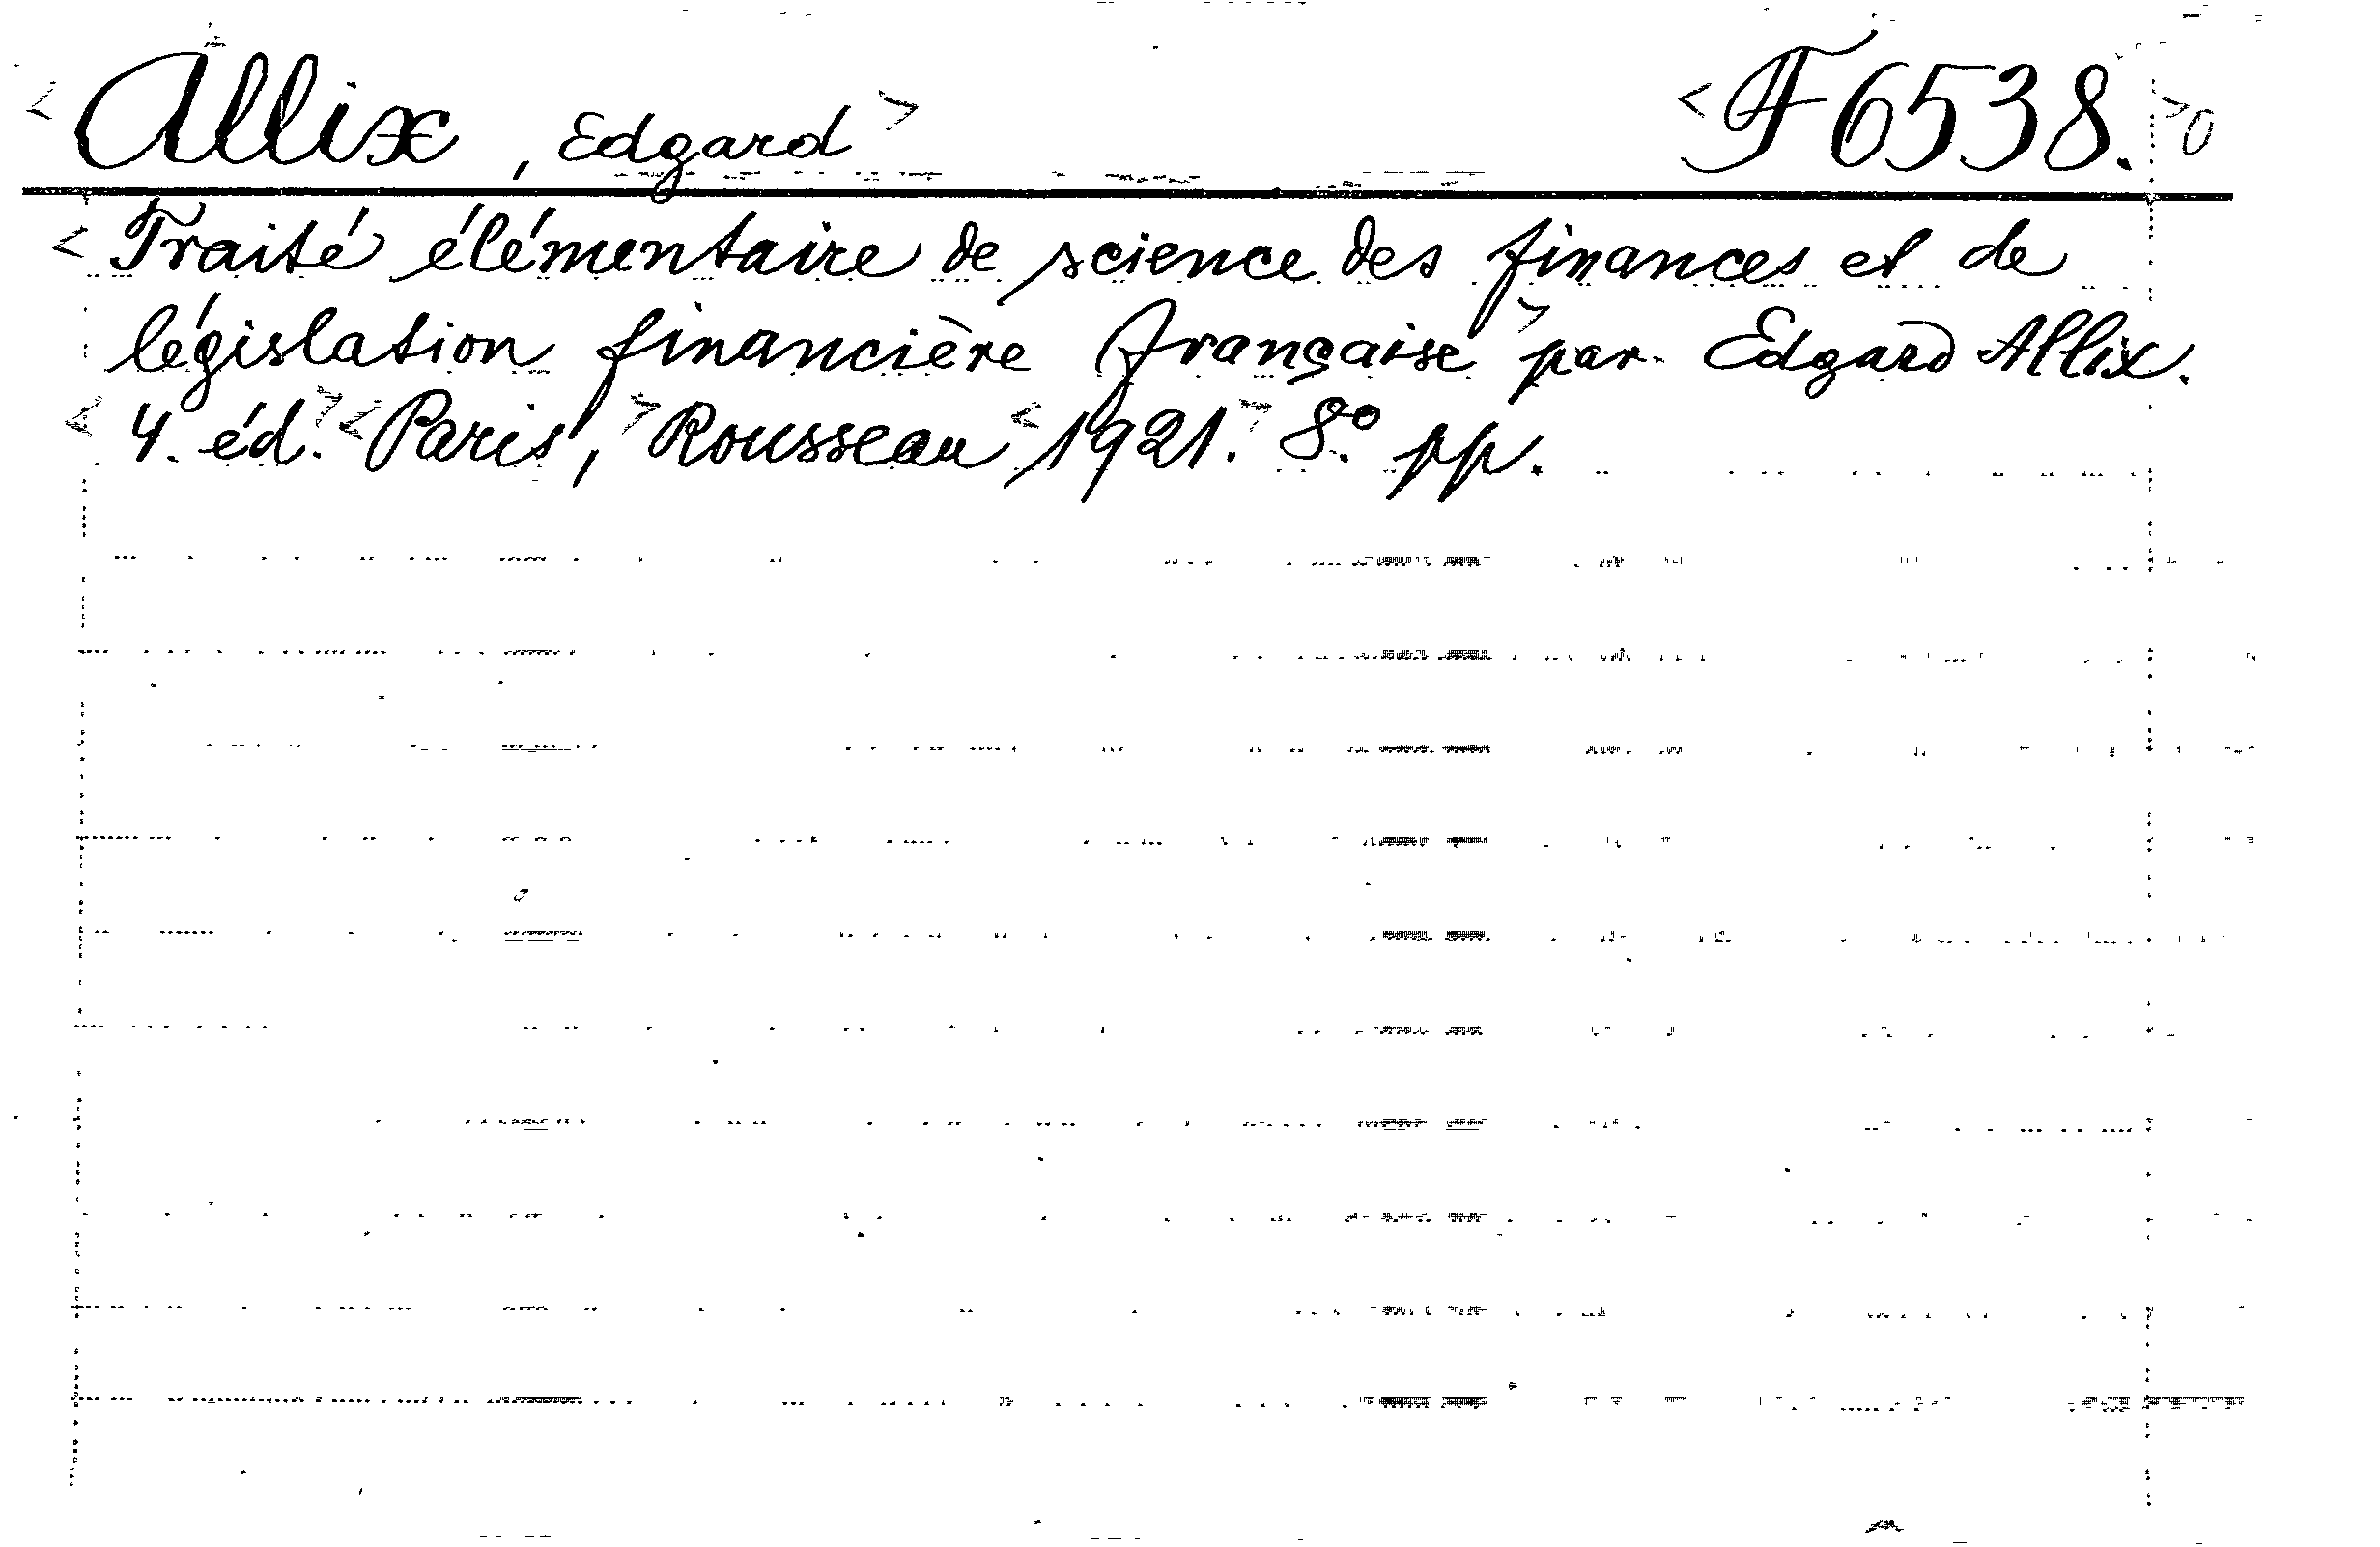 <Allix, Edgard> <F 6538.> 0
<Traité élémentaire de science des finances et de
législation financière française> par Edgard Allix.
<4. éd.> <Paris,> Rousseau <1921.> 8.º pp.